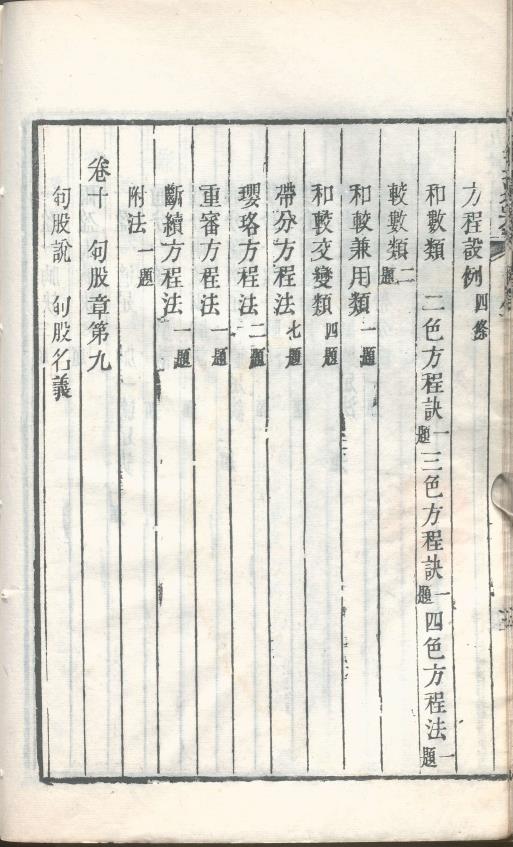 方程設例四條
和數類 二色方程訣一題三色方程訣一題四色方程法一題
較數類二題
和較兼用類一題
和較交變類四題
帶分方程法七題
瓔珞方程法二題
重審方程法一題
斷續方程法一題
附法一題
卷十 句股章第九
句股說 句股名義